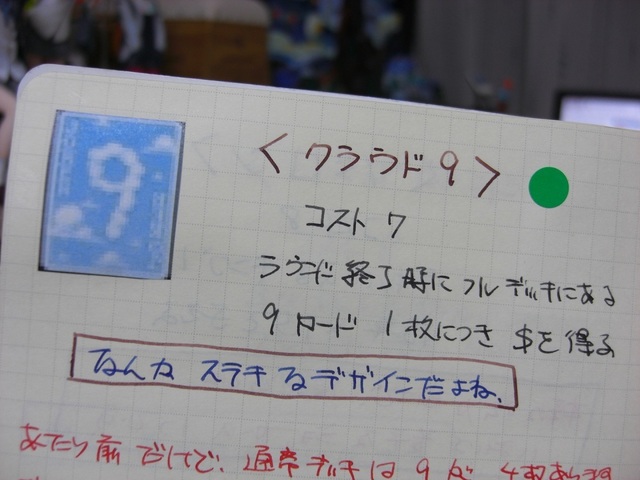 9
<クラウド9>
コスト 7
ラウンド終了時にフルデッキにある
9カード 1枚につき $を得る
なんか ステキなデザインだよね.
あたり前だけど、通常デッキは9が 4枚あります